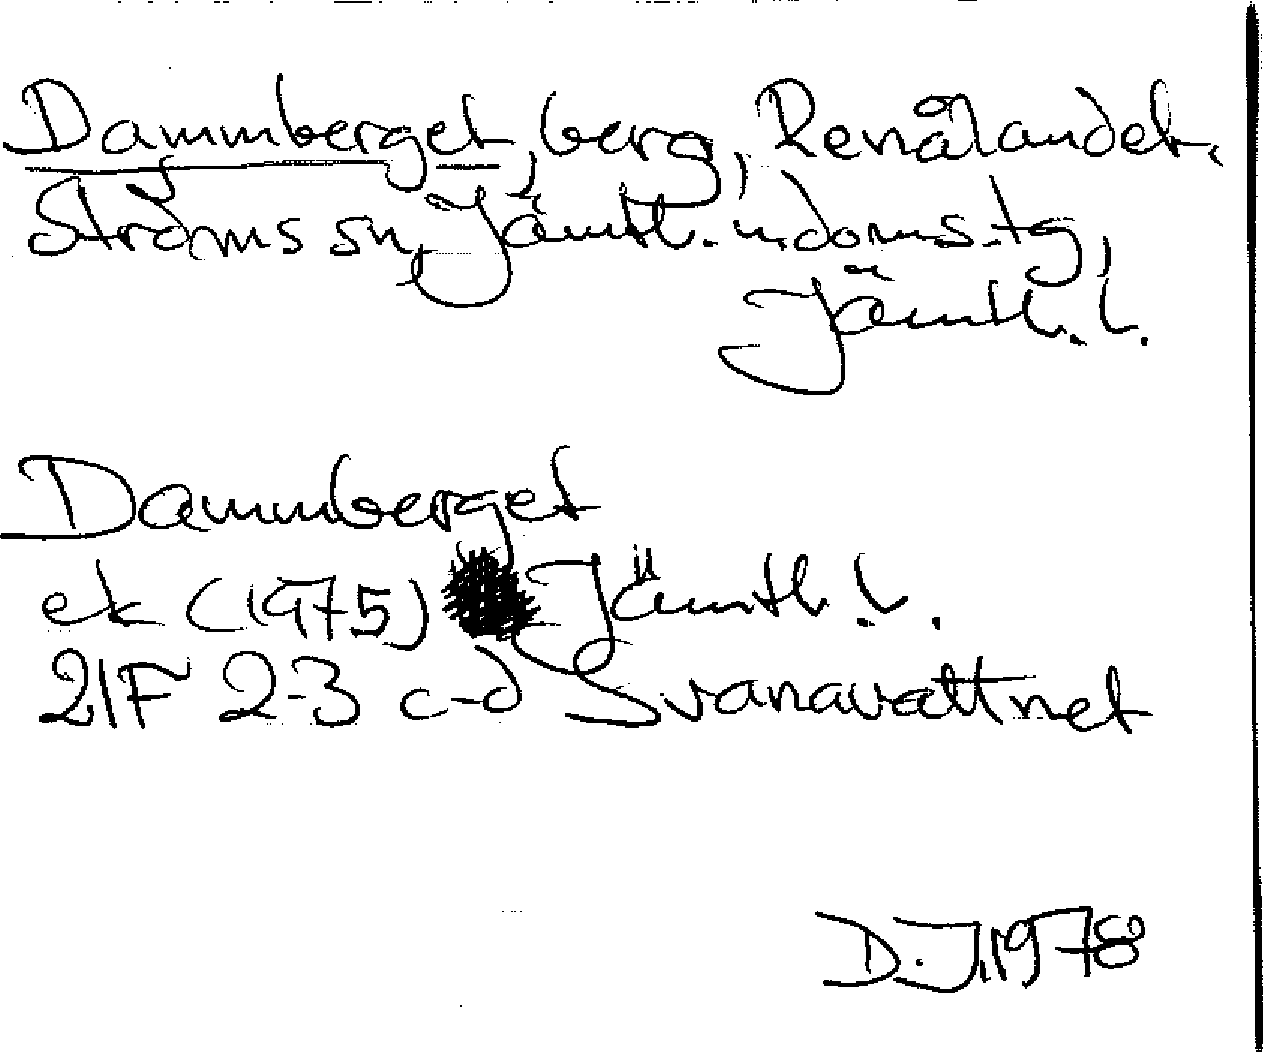 Dammberget, berg, Renålandet,
Ströms sn, Jämtl. n. doms. tg,
Jämtl. l.
Dammberget
ek (1975) Jämtl. l.
21F 2-3 c-d Svanavattnet
D. J. 1978